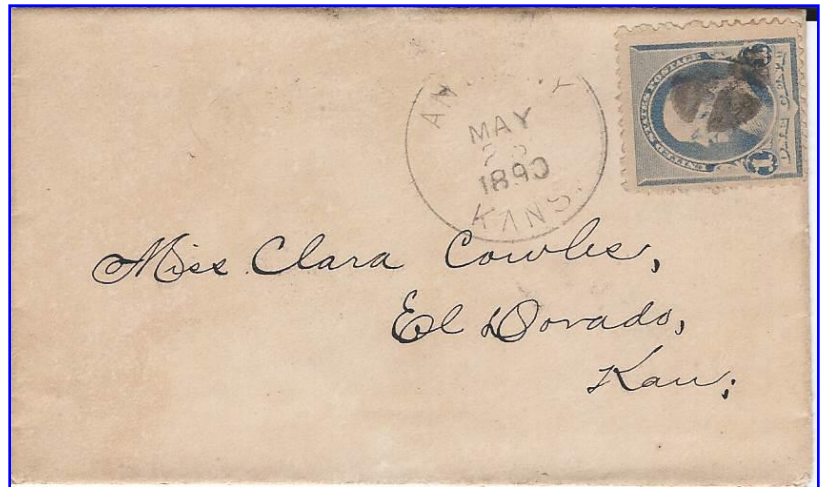 MAY
1890
KANS.
UNITED STATES POSTAGE
1
ONE CENT
Miss Clara Cowles,
El Dorado,
Kan;